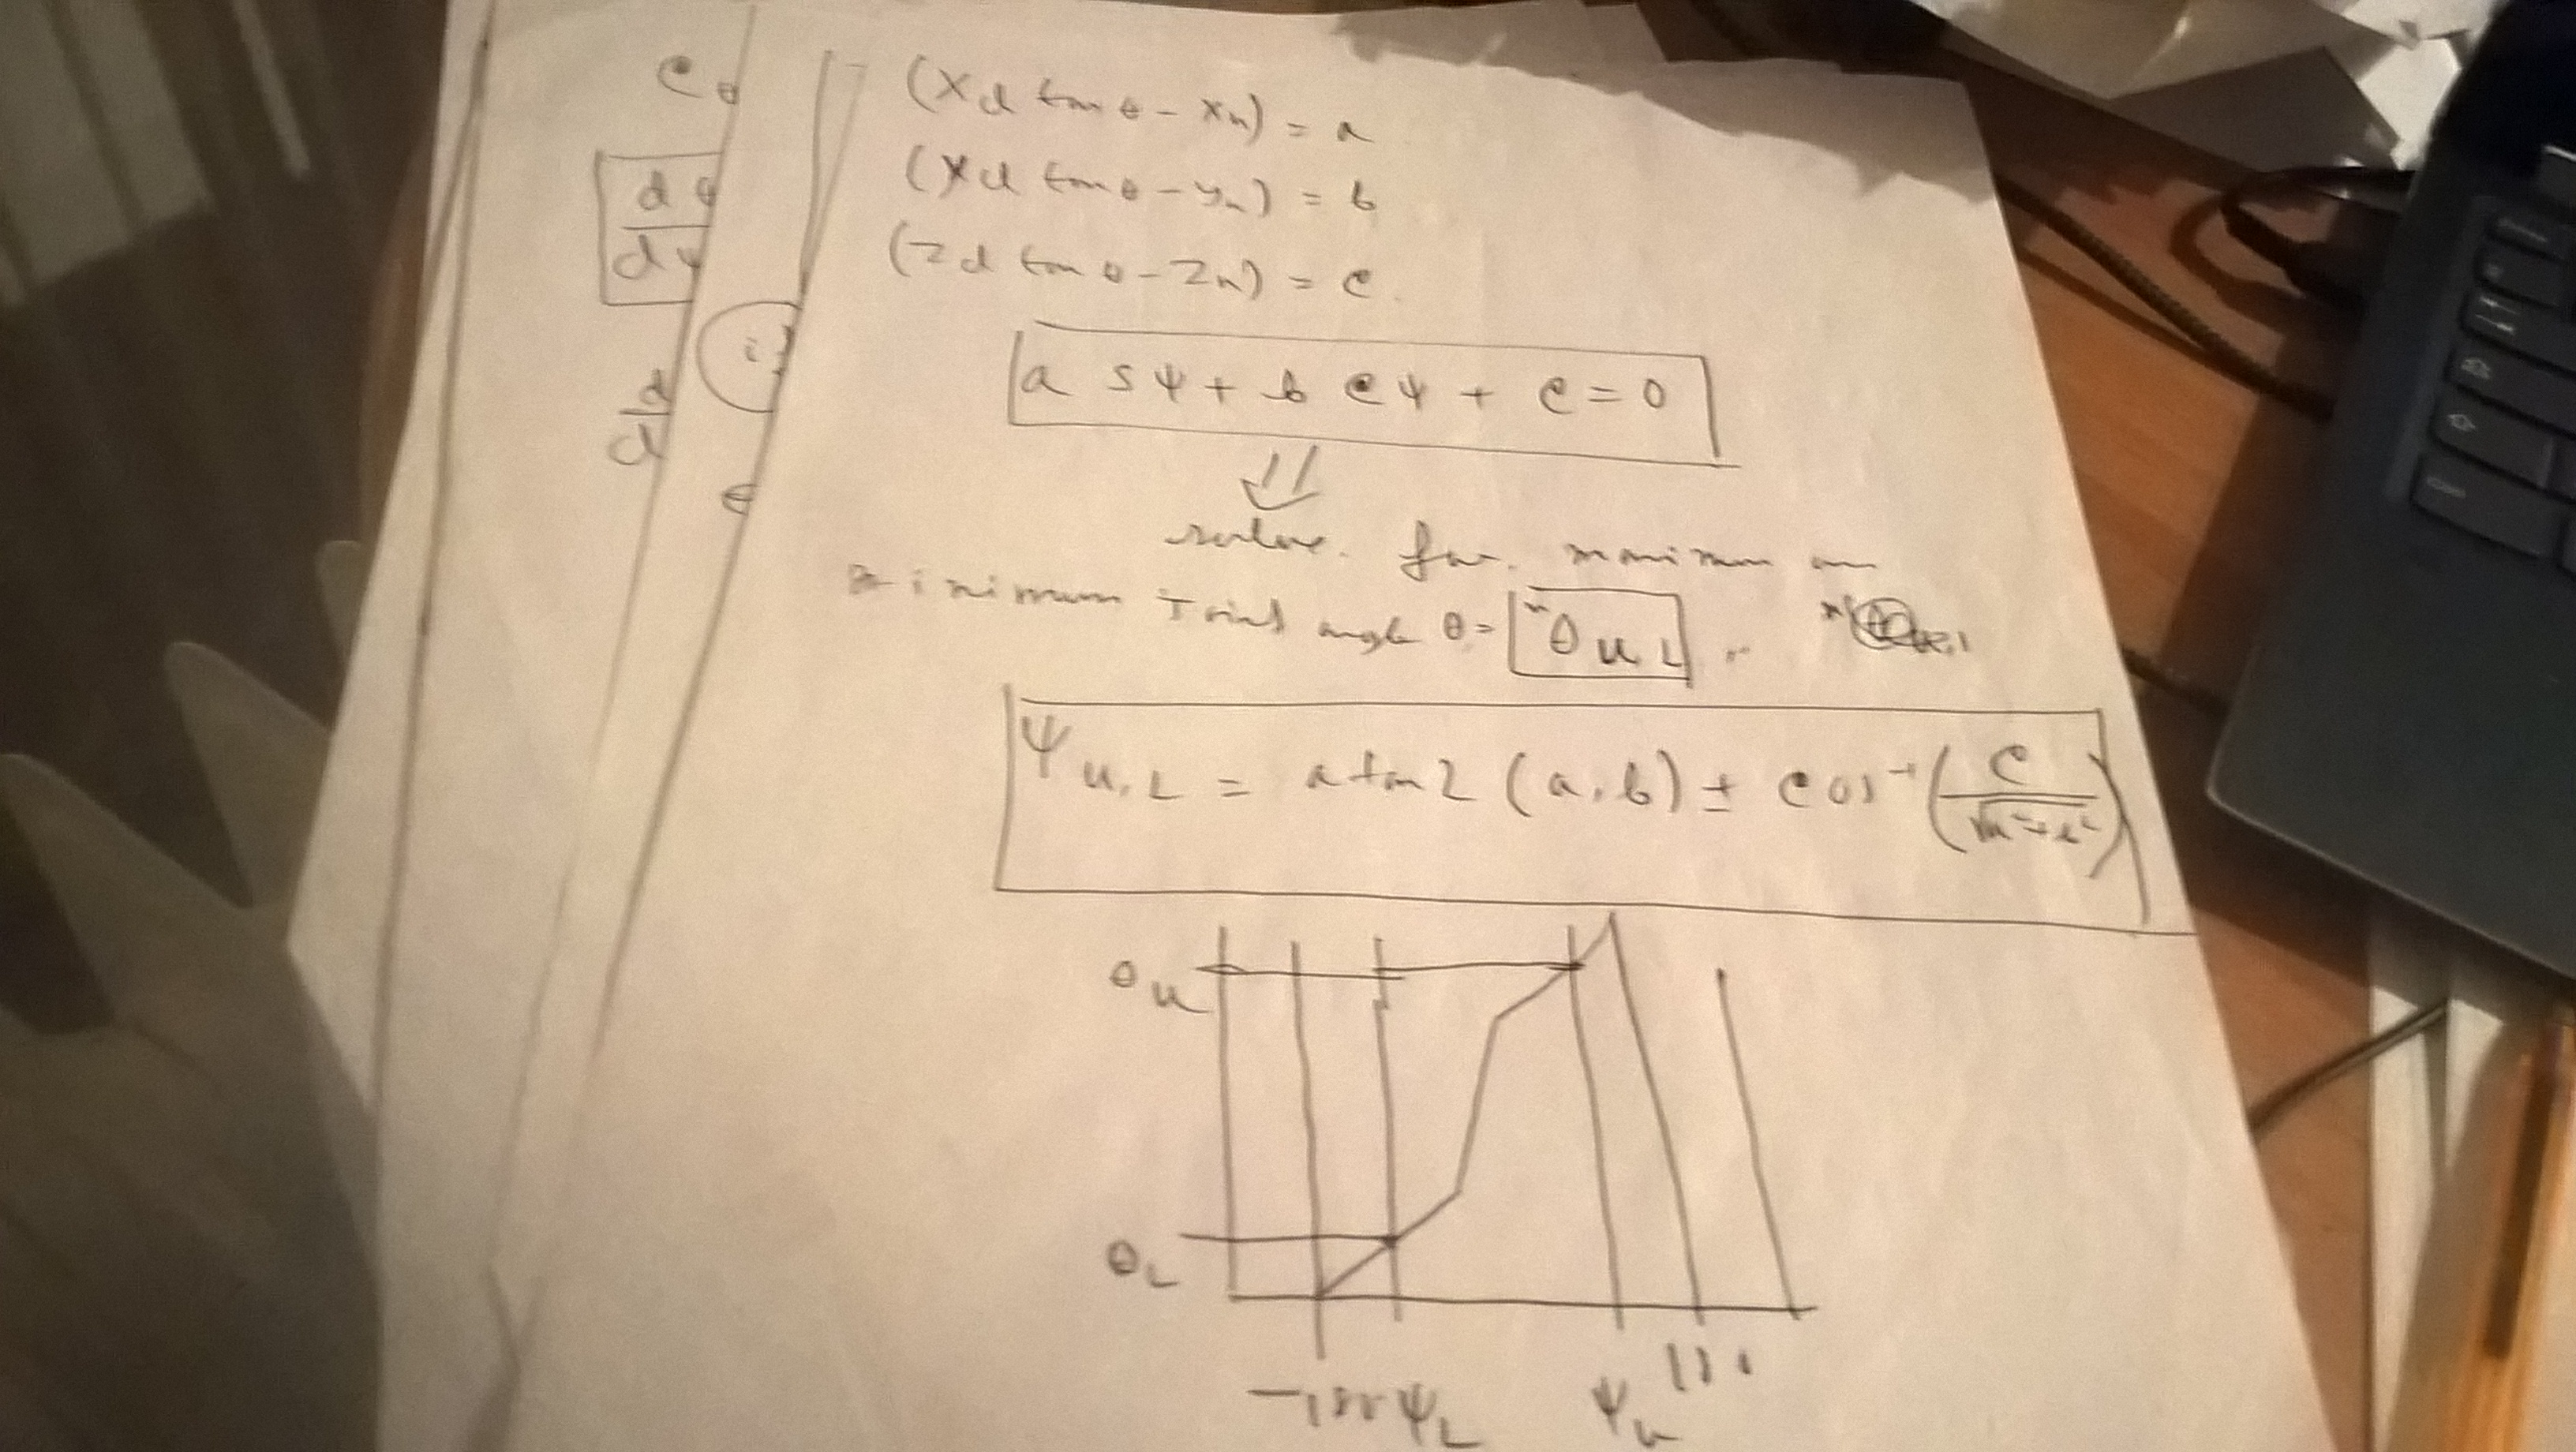 (Xd tan θ - Xn) = a
(Xd tan θ - yn) = b
(Zd tan θ - Zn) = c
a sψ + b cψ + c = 0
⇓
solve. for. maximum or
minimum joint angle θ = θ u, L
ψ u, L = atan2 (a, b) ± cos⁻¹ (c / √a²+b²)
θ u
θ L
-180 ψ L ψ u
c θ
d
d
i
d
d